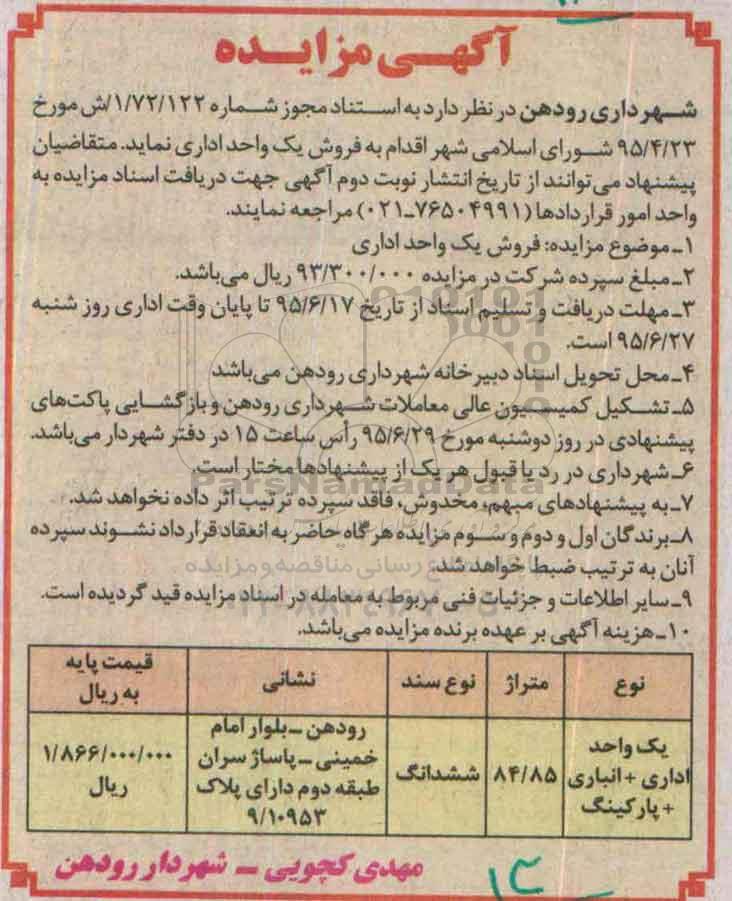 آگهی مزایده
شهرداری رودهن در نظر دارد به استناد مجوز شماره ۱/۷۲/۱۲۲/ش مورخ
۹۵/۴/۲۳ شورای اسلامی شهر اقدام به فروش یک واحد اداری نماید. متقاضیان
پیشنهاد می‌توانند از تاریخ انتشار نوبت دوم آگهی جهت دریافت اسناد مزایده به
واحد امور قراردادها (۷۶۵۰۴۹۹۱-۰۲۱) مراجعه نمایند.
۱- موضوع مزایده: فروش یک واحد اداری
۲- مبلغ سپرده شرکت در مزایده ۹۳/۳۰۰/۰۰۰ ریال می‌باشد.
۳- مهلت دریافت و تسلیم اسناد از تاریخ ۹۵/۶/۱۷ تا پایان وقت اداری روز شنبه
۹۵/۶/۲۷ است.
۴- محل تحویل اسناد دبیرخانه شهرداری رودهن می‌باشد
۵- تشکیل کمیسیون عالی معاملات شهرداری رودهن و بازگشایی پاکت‌های
پیشنهادی در روز دوشنبه مورخ ۹۵/۶/۲۹ رأس ساعت ۱۵ در دفتر شهردار می‌باشد.
۶- شهرداری در رد یا قبول هر یک از پیشنهادها مختار است.
ParsNamadData
۷- به پیشنهادهای مبهم، مخدوش، فاقد سپرده ترتیب اثر داده نخواهد شد.
۸- برندگان اول و دوم و سوم مزایده هرگاه حاضر به انعقاد قرارداد نشوند سپرده
آنان به ترتیب ضبط خواهد شد.
رسانی مناقصه و مزایده
۹- سایر اطلاعات و جزئیات فنی مربوط به معامله در اسناد مزایده قید گردیده است.
۱۰- هزینه آگهی بر عهده برنده مزایده می‌باشد.
نوع متراژ نوع سند نشانی قیمت پایه به ریال
یک واحد اداری + انباری + پارکینگ ۸۴/۸۵ ششدانگ رودهن - بلوار امام خمینی - پاساژ سران طبقه دوم دارای پلاک ۹/۱۰۹۵۳ ۱/۸۶۶/۰۰۰/۰۰۰ ریال
مهدی کچویی - شهردار رودهن
۱۳